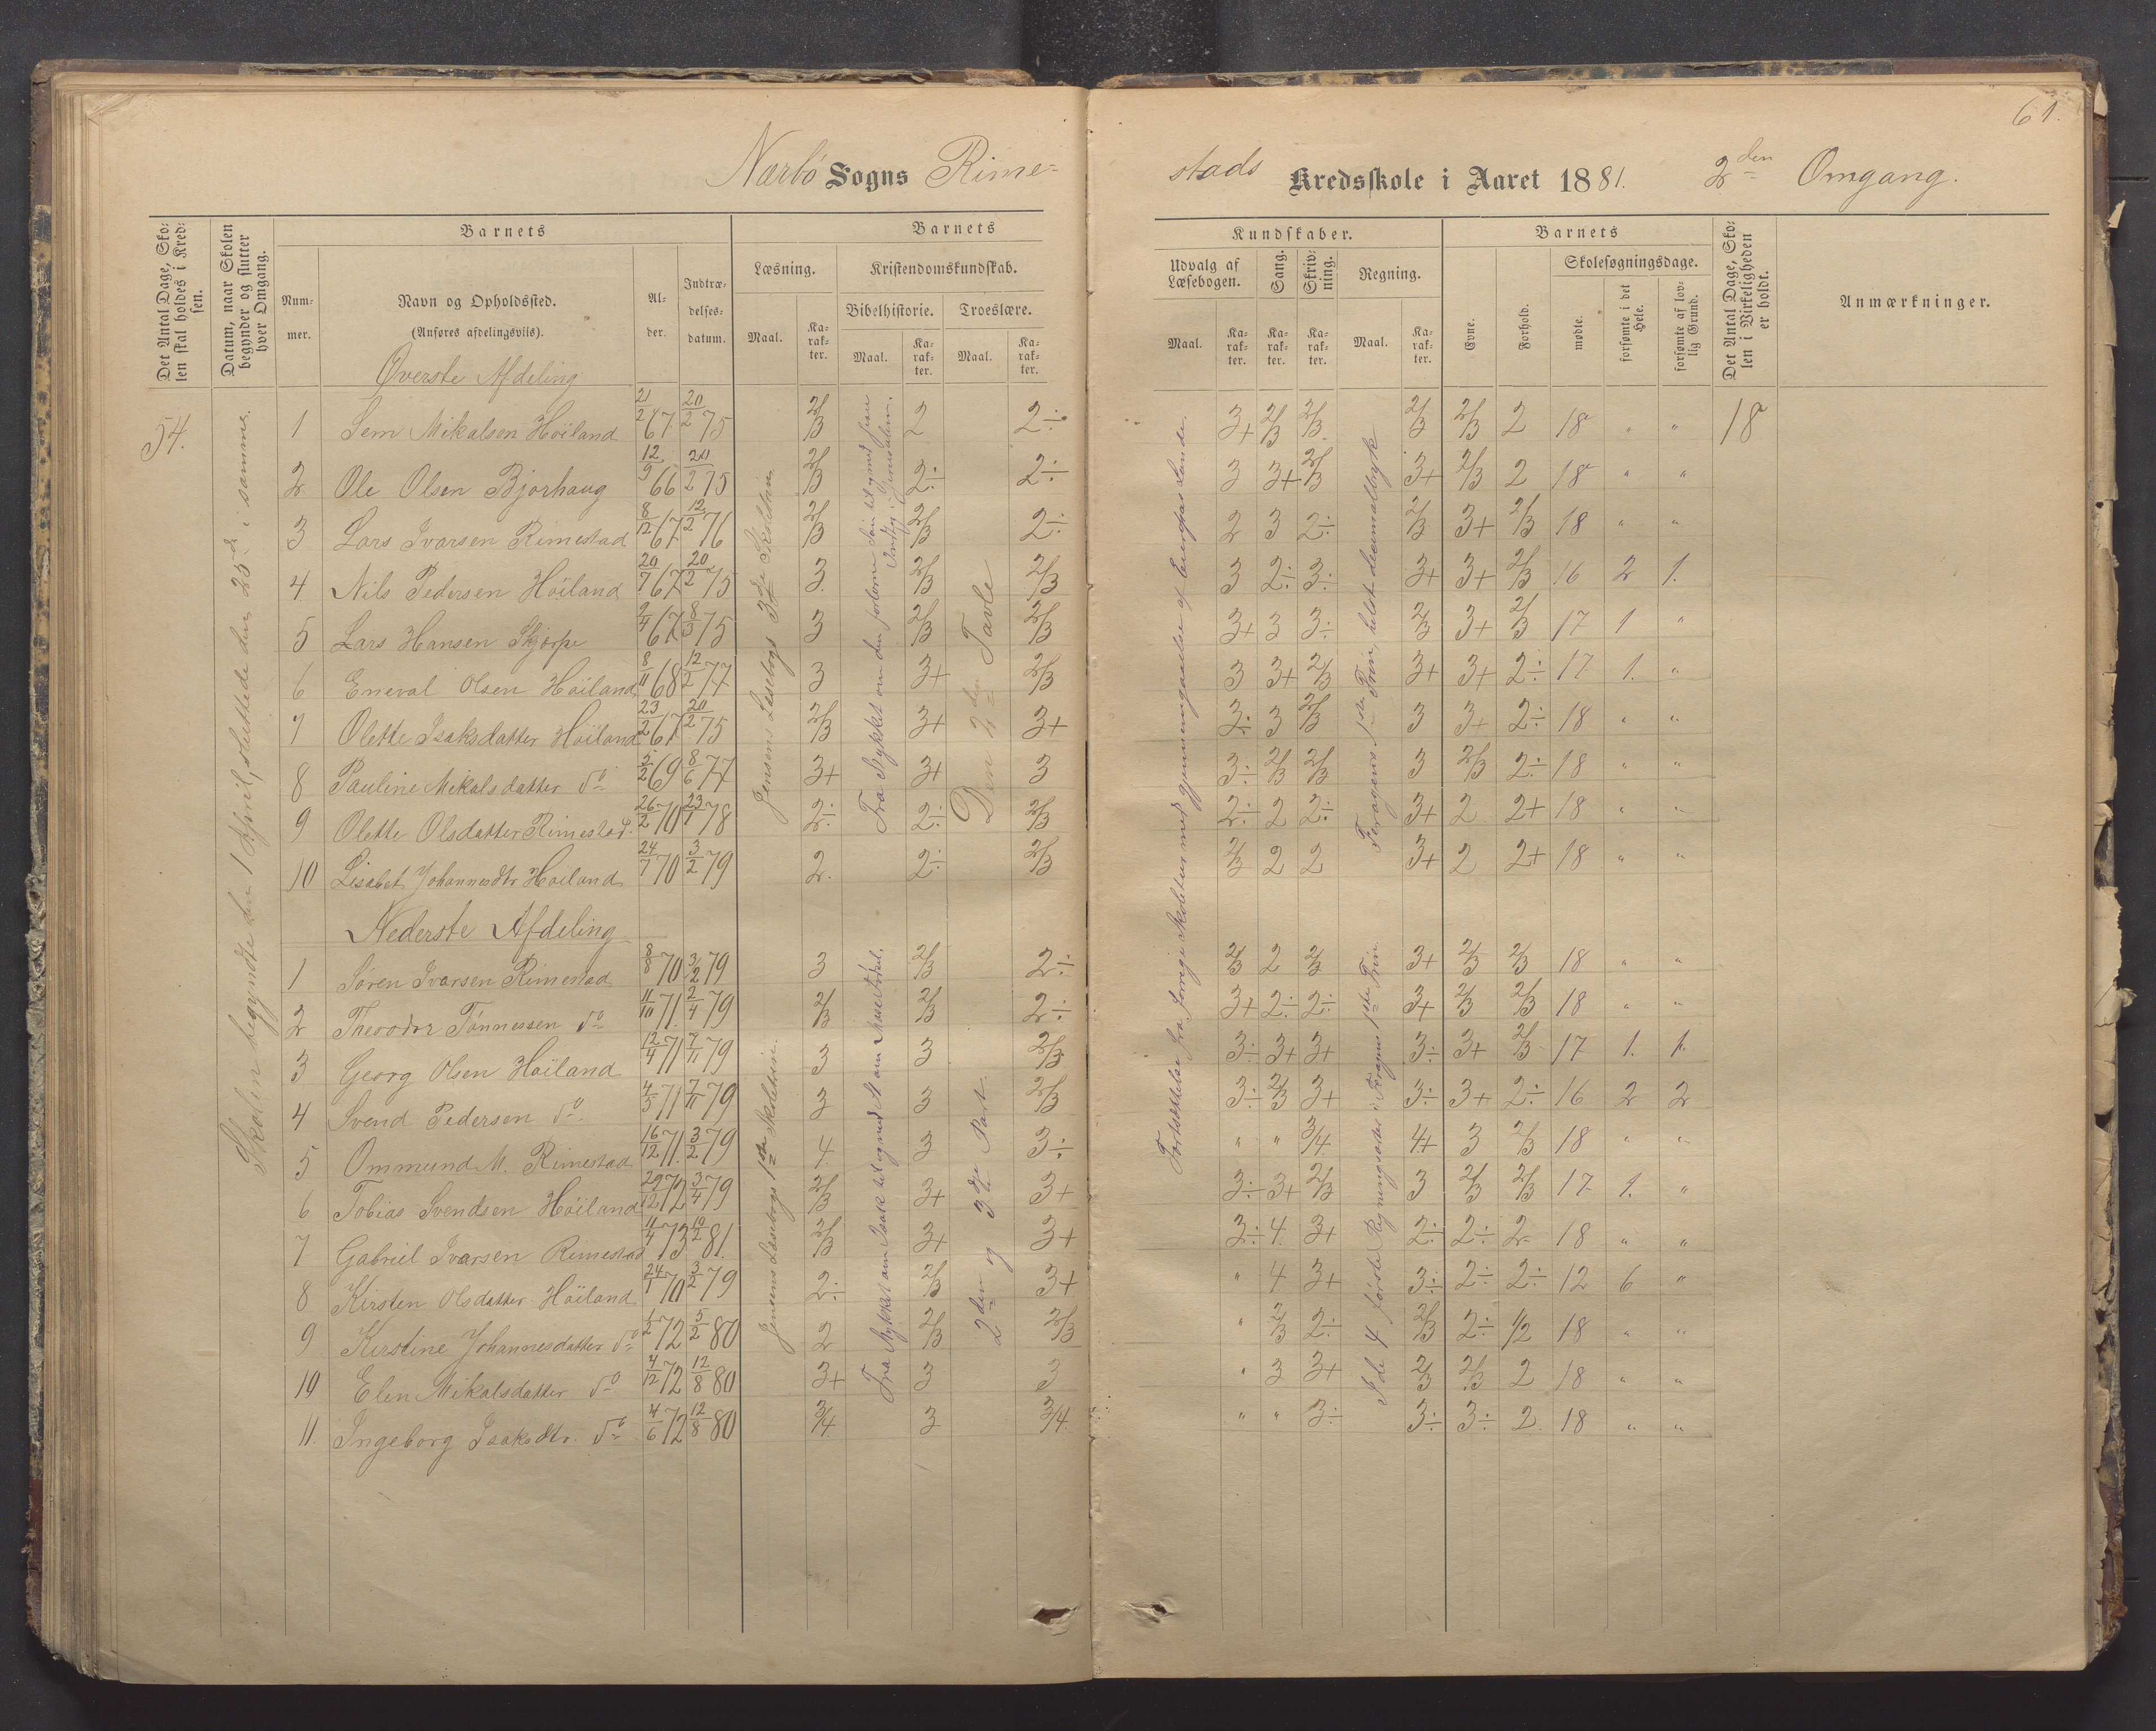 61.
Nærbö Sogns Rime-
stads Kredsskole i Aaret 1881. 2den Omgang.
Det Antal Dage, Skolen skal holdes i Kredsen.
Datum, naar Skolen begynder og slutter hver Omgang.
Barnets
Nummer.
Navn og Opholdssted.
(Anføres afdelingsviis).
Alder.
Indtrædelsesdatum.
Barnets Kundskaber.
Læsning.
Maal. Karakter.
Kristendomskundskab.
Bibelhistorie. Troeslære.
Maal. Karakter. Maal. Karakter.
Udvalg af Læsebogen.
Maal. Karakter.
Sang. Karakter.
Skrivning. Karakter.
Regning.
Maal. Karakter.
Barnets
Evne. Forhold.
Skolesøgningsdage.
mødte. forsømte i det Hele. forsømte af lovlig Grund.
Det Antal Dage, Skolen i Virkeligheden er holdt.
Anmærkninger.
54.
Skolen begyndte den 1 April, sluttede den 25de i samme.
Jensens Læsebogs 3die Skoletrin
Fra Stykket om den forlorne Søn til og med Jesu Indtog i Jerusalem.
Den 2den Tavle
Fortsættelse fra forrige Skoletur med gjennemgaaelse af Europas Lande.
Feragens 1ste Trin, helst decimalbrøk
Øverste Afdeling
1 Sem Mikalsen Höiland 21/2 67 20/2 75 2/3 2 2÷ 3+ 2/3 2/3 2/3 2/3 2 18 " " 18
2 Ole Olsen Bjorhaug 12/9 66 20/2 75 2/3 2÷ 2÷ 3 3+ 2/3 3+ 2/3 2 18 " "
3 Lars Ivarsen Rimestad 8/12 67 12/2 76 2/3 2/3 2÷ 2 3 2÷ 2/3 3+ 2/3 18 " "
4 Nils Pedersen Höiland 20/7 67 20/2 75 3 2/3 2/3 3 2÷ 3÷ 3+ 3+ 2/3 16 2 1.
5 Lars Hansen Skjörpe 2/4 67 8/3 75 3 2/3 2/3 3+ 3 3÷ 2/3 3+ 2/3 17 1 "
6 Eneval Olsen Höiland 8/11 68 12/2 77 3 3+ 2/3 3 3+ 2/3 3+ 3+ 2÷ 17 1. "
7 Olette Isaksdatter Höiland 23/2 67 20/2 75 2/3 3+ 3+ 3÷ 3 2/3 3 3+ 2÷ 18 " "
8 Pauline Mikalsdatter do 5/2 69 8/6 77 3+ 3+ 3 3÷ 2/3 2/3 3 2/3 2÷ 18 " "
9 Olette Olsdatter Rimestad. 26/2 70 23/1 78 2÷ 2÷ 2/3 2÷ 2 2÷ 3+ 2 2+ 18 " "
10 Lisabet Johannesdtr Höiland 24/7 70 3/2 79 2. 2÷ 2/3 2/3 2 2 3+ 2 2+ 18 " "
Nederste Afdeling
Jensens Læsebogs 1ste Skoletrin.
Fra Stykket om Isak til og med St. om Mose Födsel.
2den og 3die Part.
I de 4 første Regningsarter i Feragens 1ste Trin
1 Sören Ivarsen Rimestad 8/8 70 3/2 79 3 2/3 2÷ 2/3 2 2/3 3+ 2/3 2/3 18 " "
2 Theodor Tönnessen do 11/10 71. 2/4 79 2/3 2/3 2÷ 3+ 2÷ 2÷ 3+ 2/3 2/3 18 " "
3 Georg Olsen Höiland 12/4 71 7/11 79 3 3 2/3 3÷ 3+ 3+ 3÷ 3+ 2/3 17 1. 1.
4 Svend Pedersen do. 4/5 71 7/11 79 3 3 2/3 3÷ 2/3 3+ 3÷ 3+ 2÷ 16 2 2
5 Ommund M. Rimestad 16/12 71. 3/2 79 4. 3 3÷ " " 3/4 4+ 3 2/3 18 " "
6 Tobias Svendsen Höiland 29/12 72 3/4 79 2/3 3+ 3+ 3÷ 3+ 2/3 3 2/3 2/3 17 1. "
7 Gabriel Ivarsen Rimestad 11/4 73 10/2 81. 2/3 3+ 3+ 3÷ 4. 3+ 2÷ 2÷ 2 18 " "
8 Kirsten Olsdatter Höiland 24/1 70 3/2 79 2÷ 2/3 3+ " 4 3+ 3÷ 2÷ 2÷ 12 6 "
9 Kirstine Johannesdatter do 1/2 72 5/2 80 2 2/3 2/3 " 2/3 2÷ 2/3 2÷ 1/2 18 " "
10 Elen Mikalsdatter do 4/12 72 12/8 80 3+ 3 3 " 3 3+ 2/3 2/3 2 18 " "
11. Ingeborg Isaksdtr. do 4/6 72 12/8 80 3/4 3 3/4 " " 3÷ 3÷ 3÷ 2 18 " "